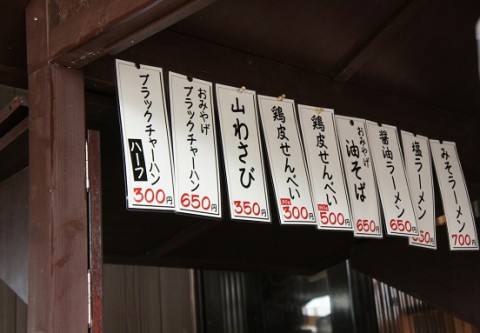 ブラックチャーハン
ハーフ
300円
おみやげ
ブラックチャーハン
650円
山わさび
350円
鶏皮せんべい
300円
鶏皮せんべい
500円
おみやげ
油そば
650円
醤油ラーメン
650円
塩ラーメン
650円
みそラーメン
700円